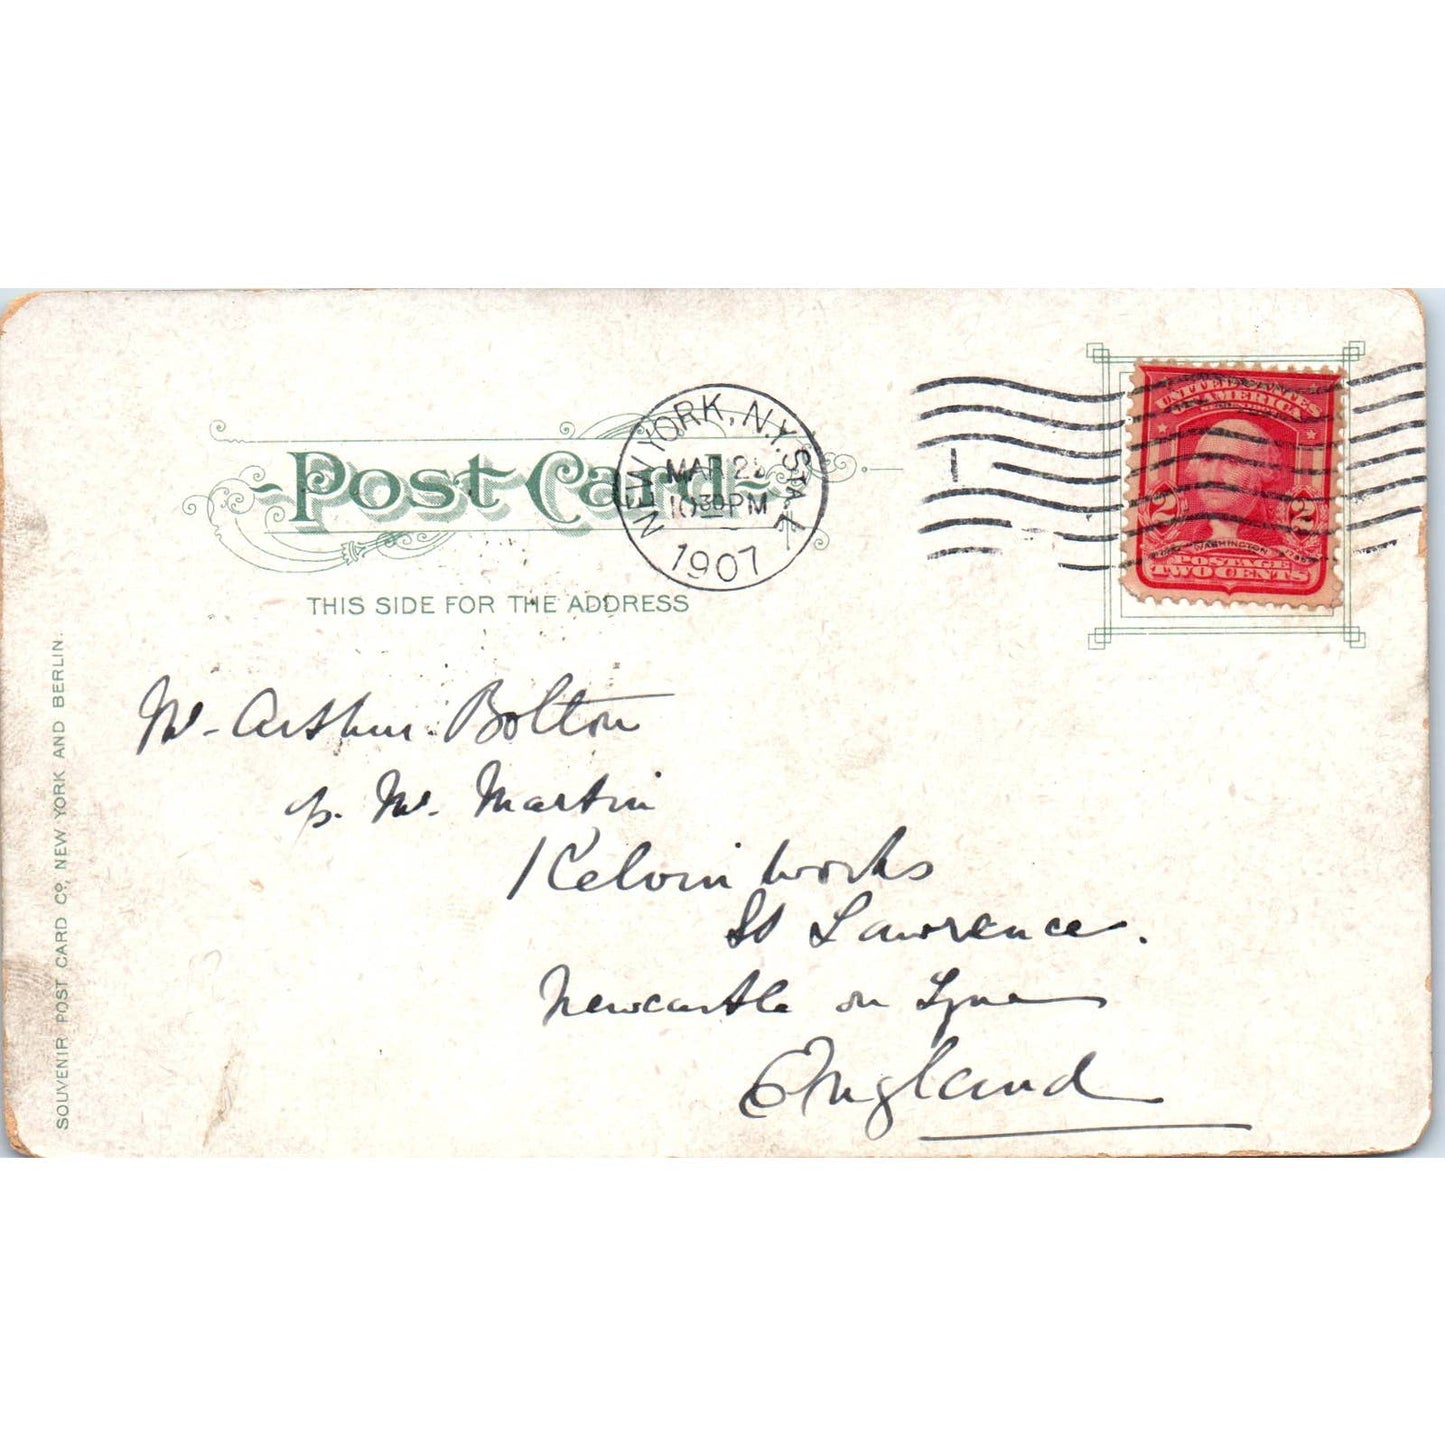 Post Card
THIS SIDE FOR THE ADDRESS
NEW YORK, N.Y. STA. L
MAR
10 30 PM
1907
1
UNITED STATES
OF AMERICA
2 2
WASHINGTON
POSTAGE
TWO CENTS
Mr. Arthur Bolton
Mr. Martin
Kelvin Works
St Lawrence.
Newcastle on Tyne
England
SOUVENIR POST CARD Co, NEW YORK AND BERLIN.